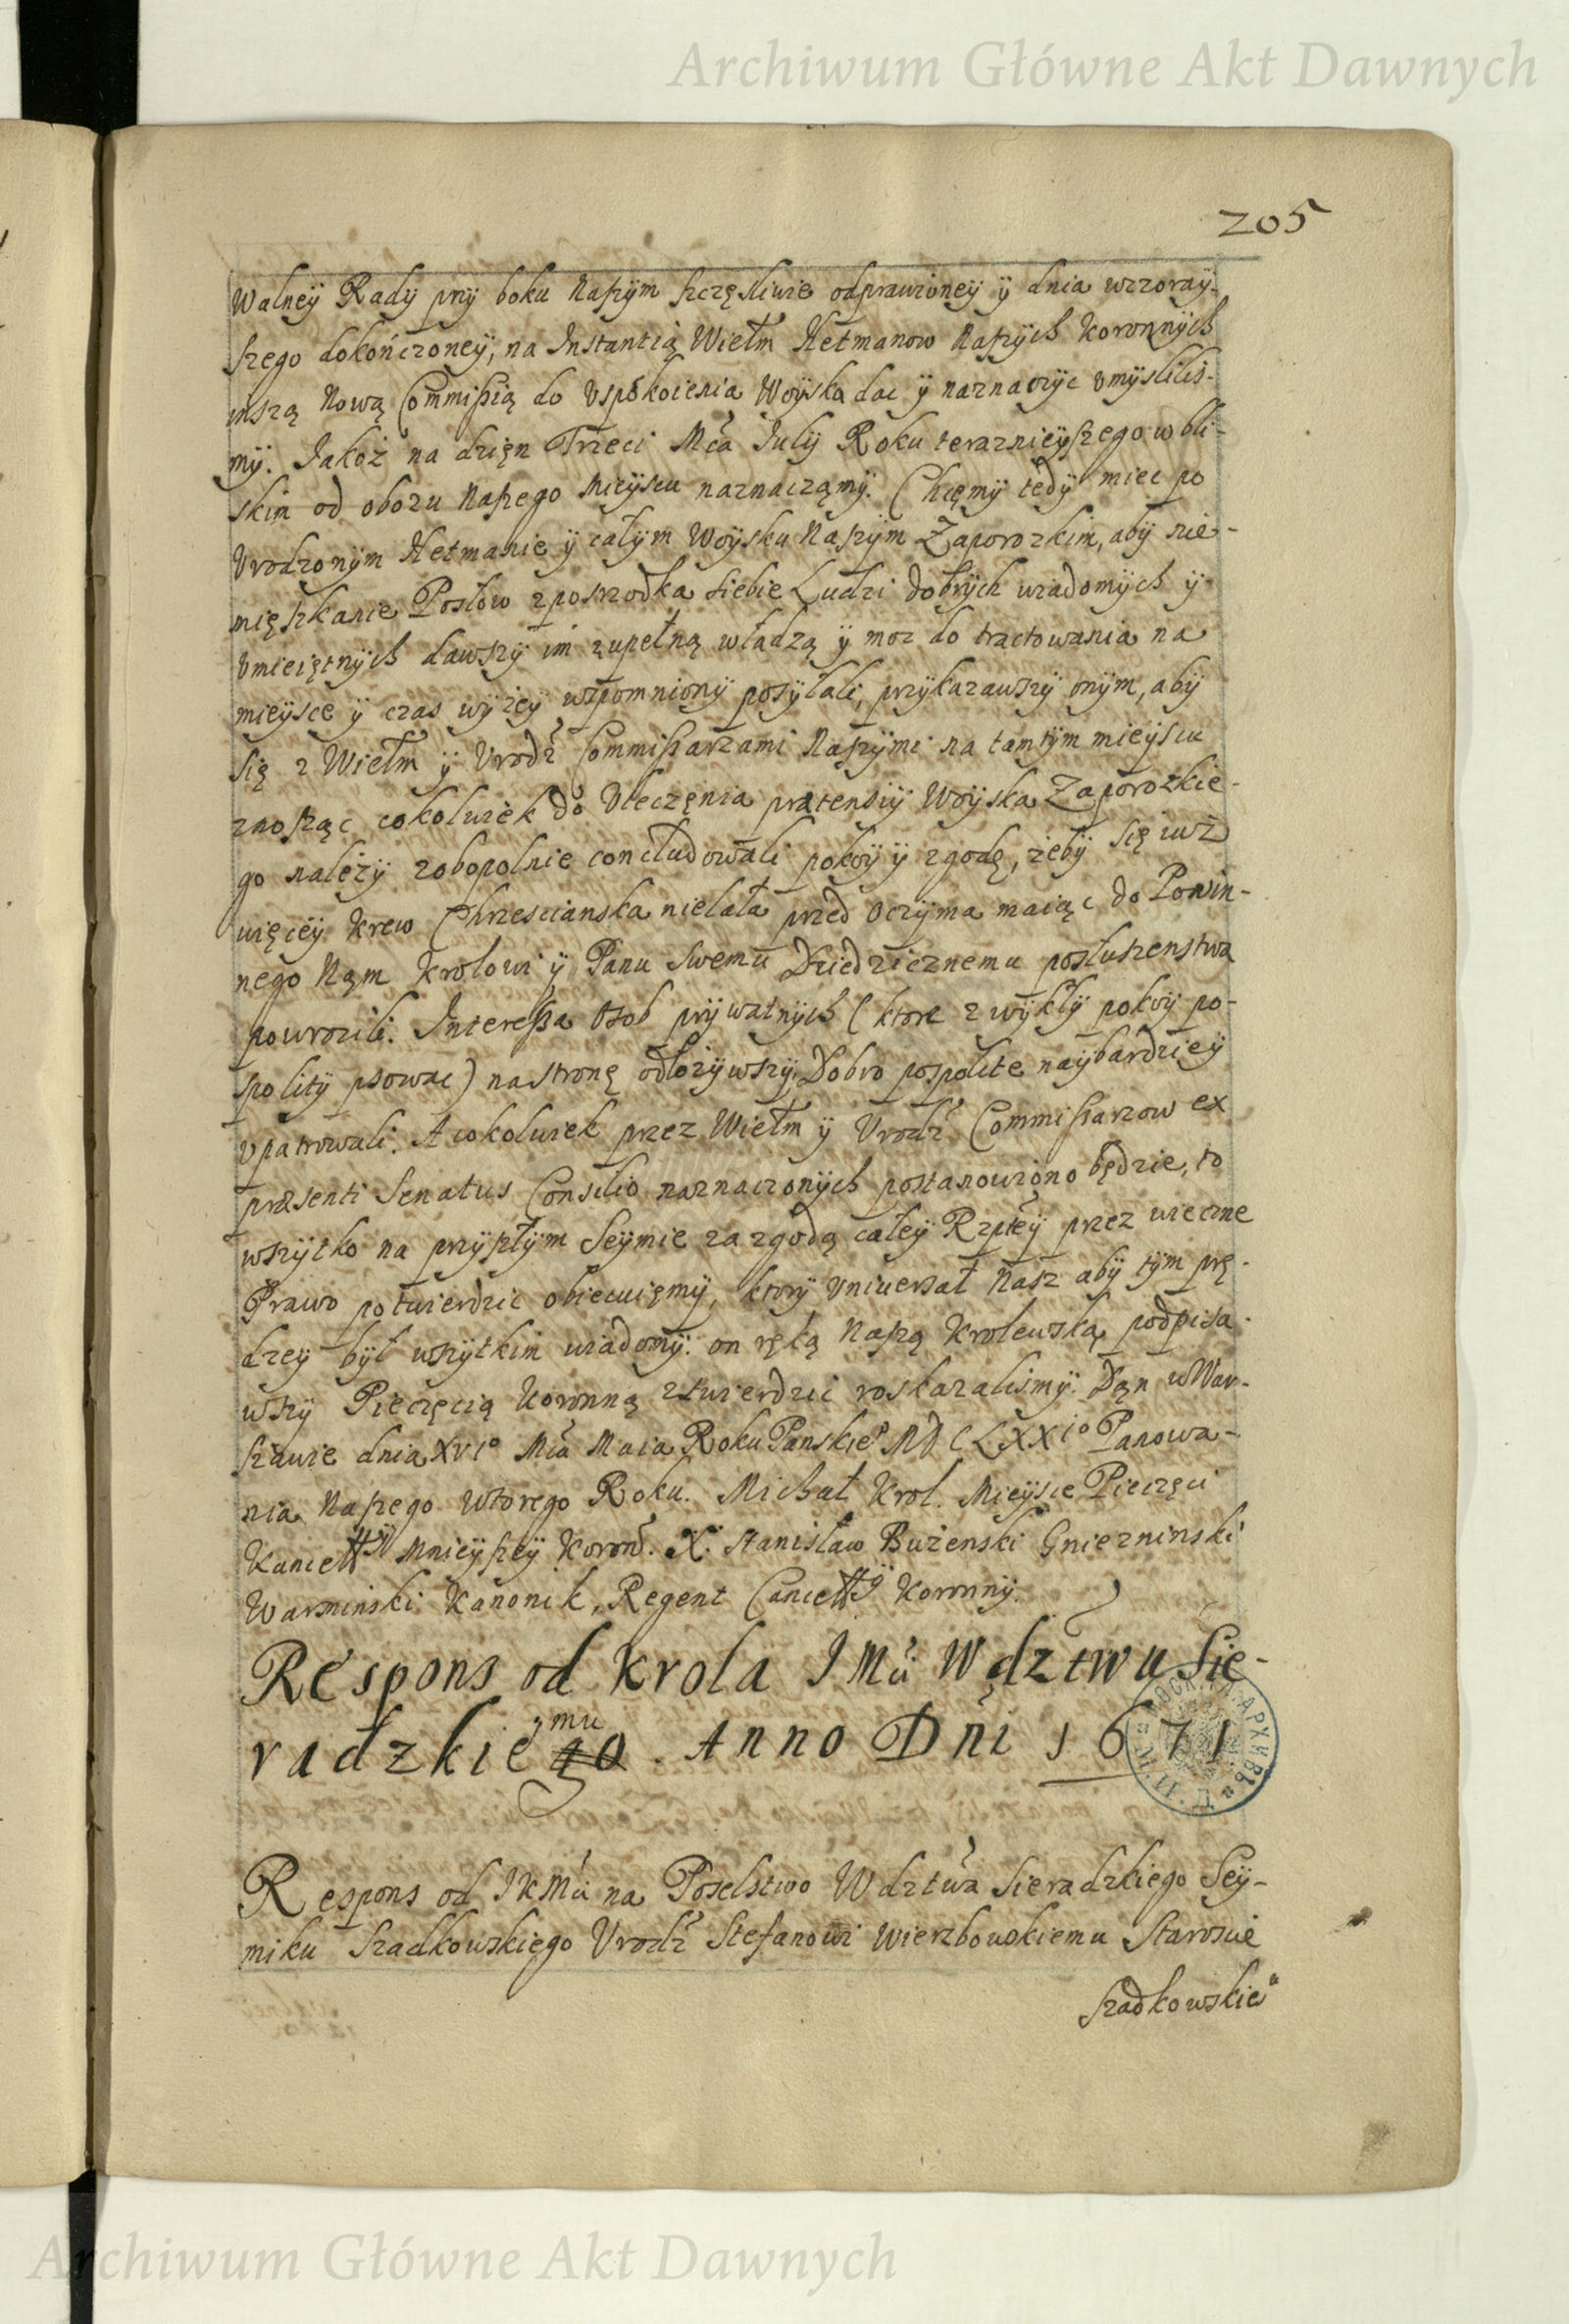 Archiwum Główne Akt Dawnych
205
Walneÿ Radÿ przÿ boku Naszÿm szczęsliwie odprawioneÿ ÿ dnia wczoraÿ-
szego dokończoneÿ, na Instantią Wielm Hetmanow Naszÿch Koronnÿch
inszą Nową Commissią do Vspokoienia Woÿska dac ÿ naznaczÿc vmÿslilis-
mÿ. Jakoż na dzięn Trzeci Mca Julÿ Roku terazniejszego w bli-
skim od obozu Naszego Mieÿscu naznaczamÿ. Chcęmÿ tedÿ miec po
Vrodzonÿm Hetmanie ÿ całÿm Woÿsku Naszÿm Zaporozkim, abÿ nie-
mięszkanie Posłow z posrzodka siebie Ludzi dobrÿch wiadomÿch ÿ
vmieiętnÿch dawszÿ im zupełną władzą ÿ moc do tractowania na
mieÿsce ÿ czas wÿzeÿ wspomnionÿ posÿłali, przÿkazawszÿ onÿm, abÿ
się z Wielm ÿ Vrodz Commissarzami Naszÿmi na tamtÿm mieÿscu
znosząc cokolwiek do Vleczęnia prætensiÿ Woÿska Zaporozkie-
go należÿ zobopolnie concludowali pokoÿ ÿ zgodę, żebÿ się iuż
więceÿ krew Chrzescianska nielała przed oczÿma maiąc do Powin-
nego Nąm Krolowi ÿ Panu Swemu Dziedzicznemu posłuszenstwa
powrocili. Interessa Osob prÿwatnÿch (ktore zwÿkłÿ pokoÿ po-
spolitÿ psowac) na stronę odłożÿwszÿ, Dobro pospolite naÿbardzieÿ
vpatrowali. A cokolwiek przez Wielm ÿ Vrodz Commissarzow ex
præsenti Senatus Consilio naznaczonÿch postanowiono będzie, to
wszÿtko na przÿszłÿm Seÿmie za zgodą całeÿ Rzpteÿ przez wieczne
Prawo potwierdzic obiecuięmÿ, ktorÿ Vniuersał Nasz abÿ tÿm prę-
dzeÿ bÿł wszÿtkim wiadomÿ: on ręką Naszą Krolewską podpisa-
wszÿ Pieczęcią Koronną ztwierdzic roskazalismÿ. Dąn w War-
szawie dnia XVIo Mca Maia Roku Panskieo MDCLXXIo Panowa-
nia Naszego wtorego Roku. Michał Krol. Mieÿsce Pieczęci
Kancellÿ Mnieÿszeÿ Koron. X. Stanisław Bużenski Gniezninski
Warminski Kanonik, Regent Cancellÿ Koronnÿ.
Respons od Krola JMci Wdztwu Sie-
radzkiemu go. Anno Dni 1671
Respons od JKMci na Poselstwo Wdztwa Sieradzkiego Seÿ-
miku Szadkowskięgo Vrodz Stefanowi Wierzbowskiemu Staroscie
Szadkowskie
Archiwum Główne Akt Dawnych